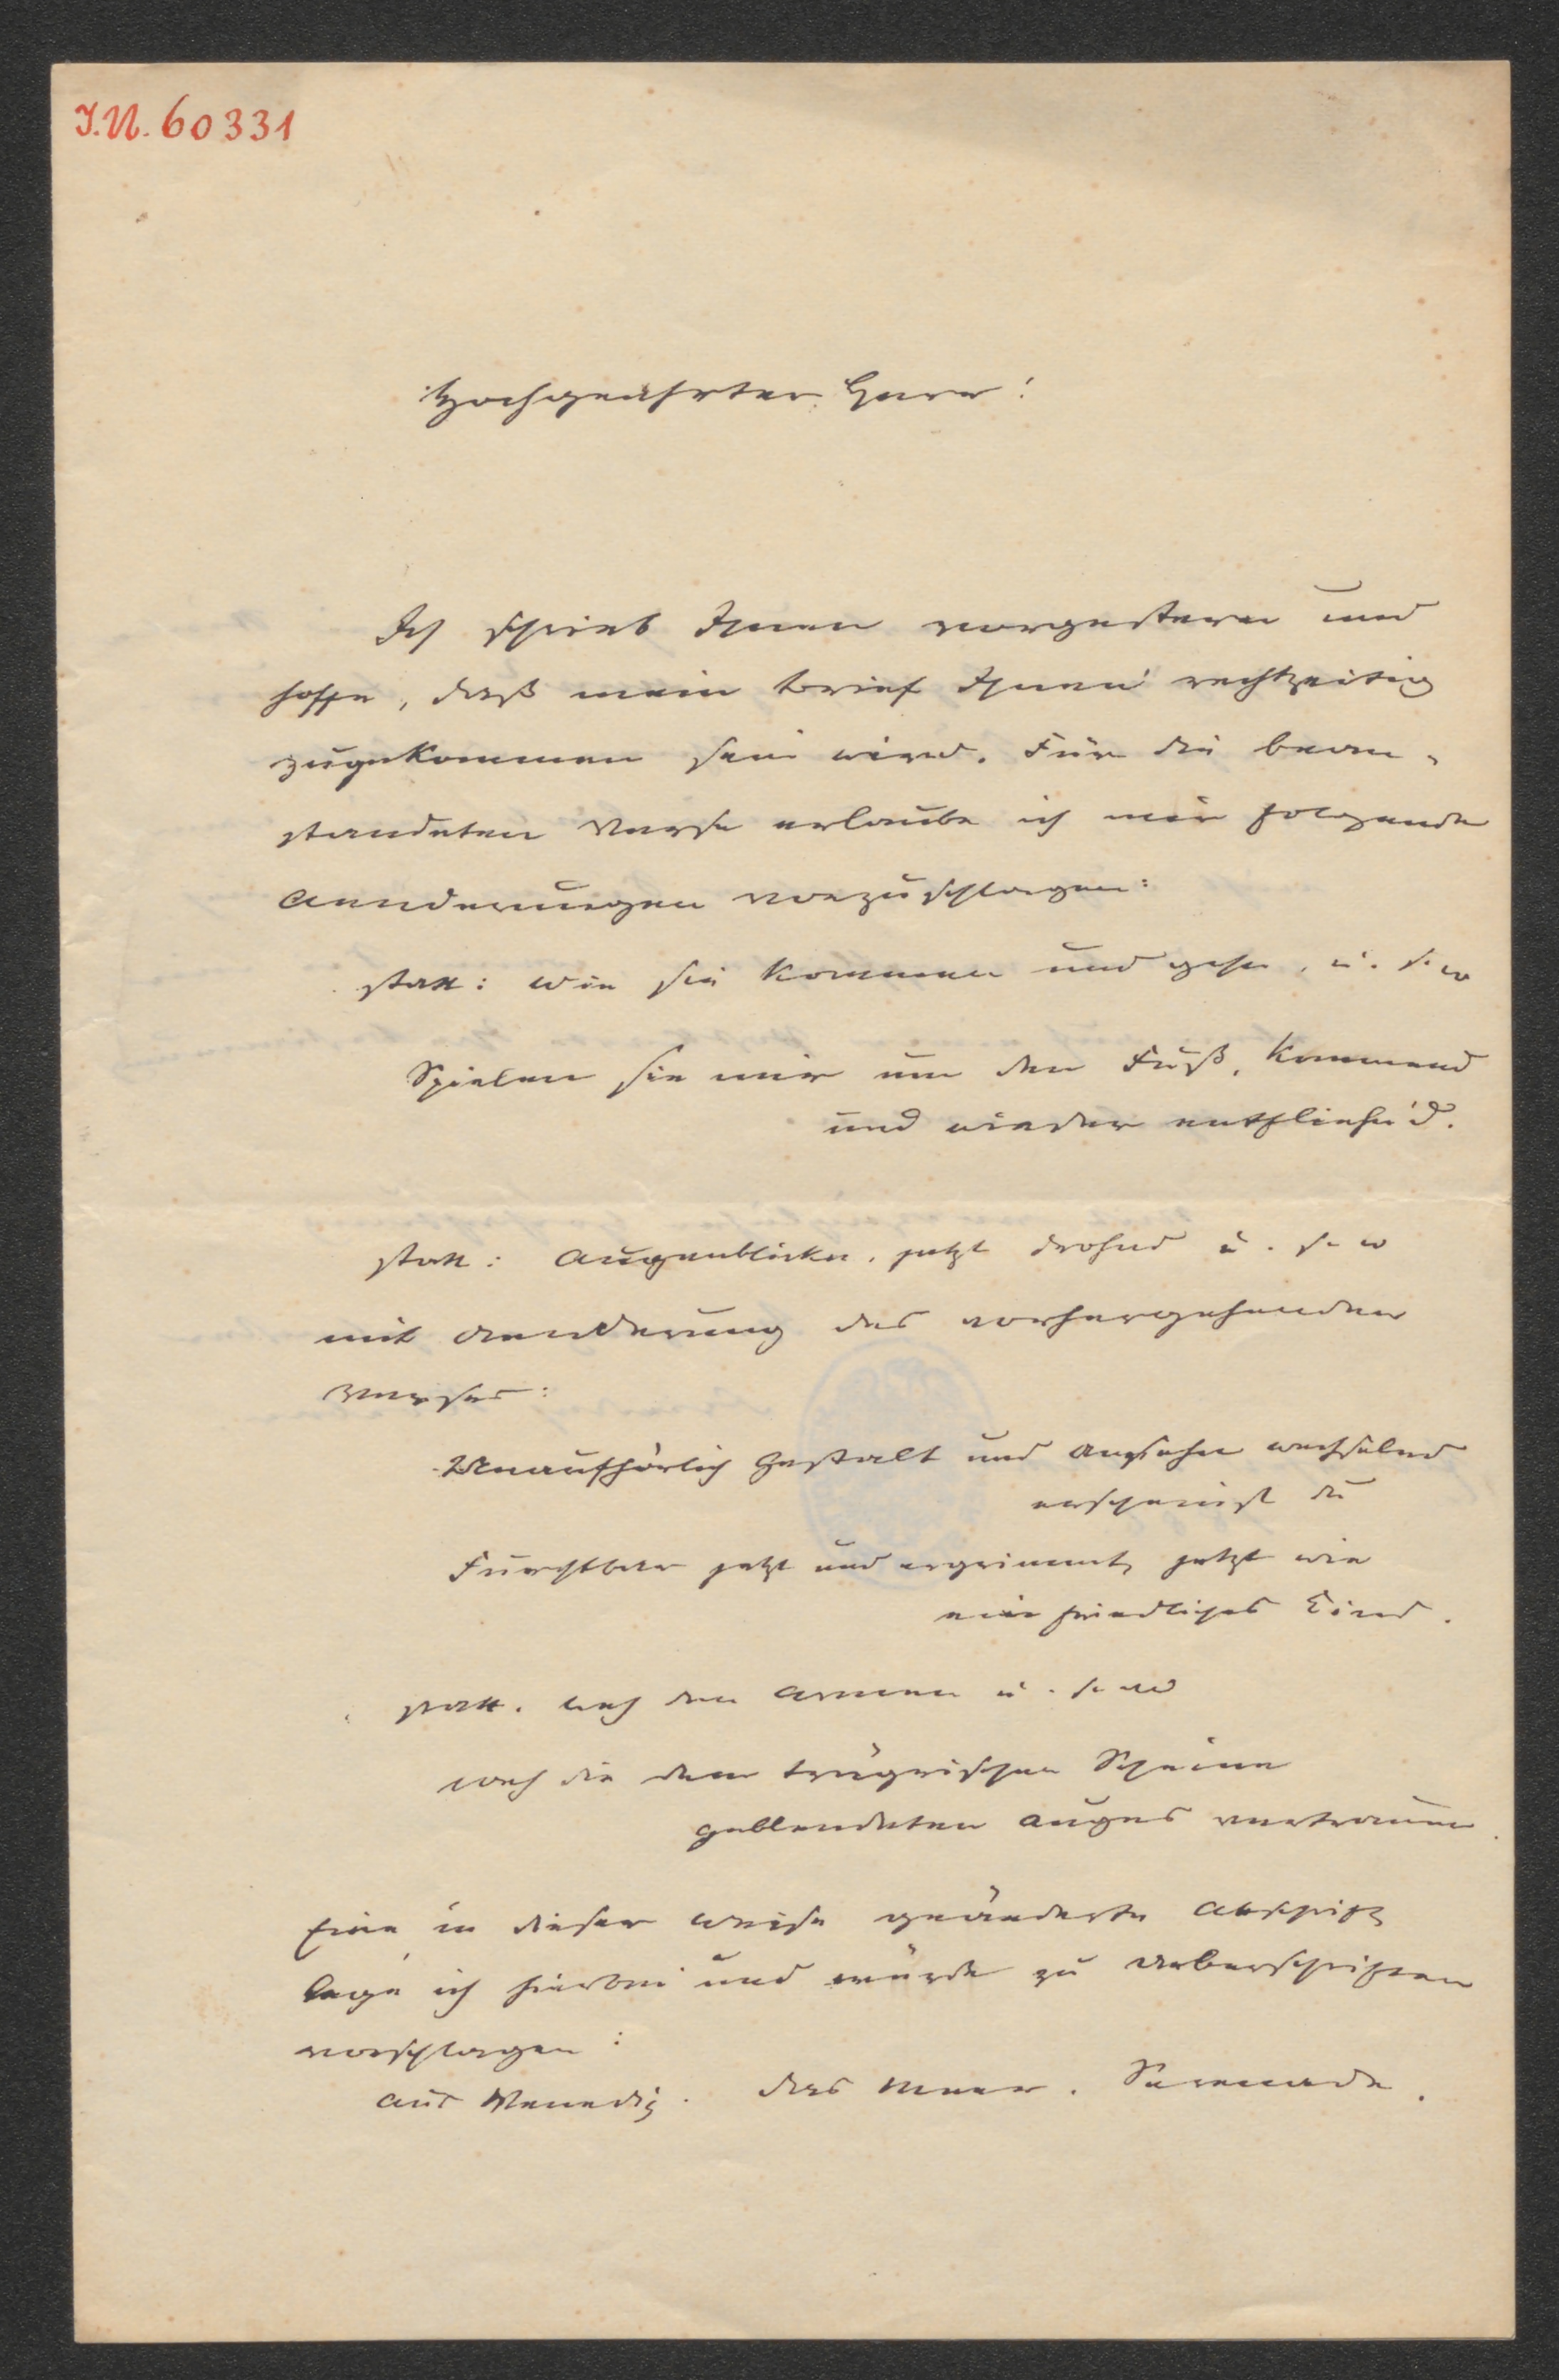 I.N. 60331
Hochgeehrter Herr!
Ich schrieb Ihnen vorgestern und
hoffe, daß mein Brief Ihnen rechtzeitig
zugekommen sein wird. Für die bean-
standeten Verse erlaube ich mir folgende
Aenderungen vorzuschlagen:
statt: Wie sie kommen und gehn, u. s. w
Spielen sie mir um den Fuß, kommend
und wieder entflieh'nd.
statt: Augenblicke, jetzt drohnd u. s. w
mit Aenderung des vorhergehenden
Verses:
Unaufhörlich Gestalt und Ansehn wechselnd
erscheinst du
Furchtbar jetzt und ergrimmt, jetzt wie
ein friedliches Kind.
statt. Weh den Armen u. s. w
Weh die dem trügrischen Scheine
geblendeten Auges vertraun.
Eine in dieser Weise geänderte Abschrift
lege ich hierbei und würde zu Ueberschriften
vorschlagen:
Aus Venedig. Das Meer. Serenade.